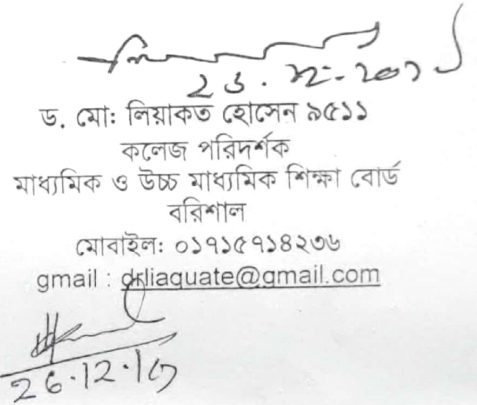 ড. মোঃ লিয়াকত হোসেন ৯৫১১
কলেজ পরিদর্শক
মাধ্যমিক ও উচ্চ মাধ্যমিক শিক্ষা বোর্ড
বরিশাল
মোবাইল: ০১৭১৫৭১৪২৩৬
gmail : drliaquate@gmail.com